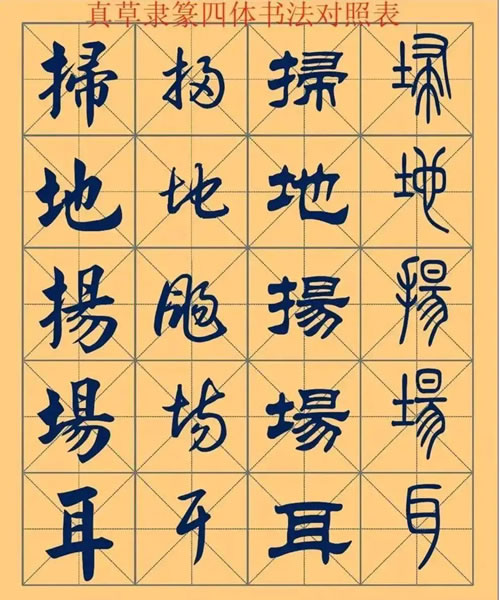 真草隶篆四体书法对照表
掃 掃 掃 埽
地 地 地 地
揚 揚 揚
場 場 場 場
耳 耳 耳 耳